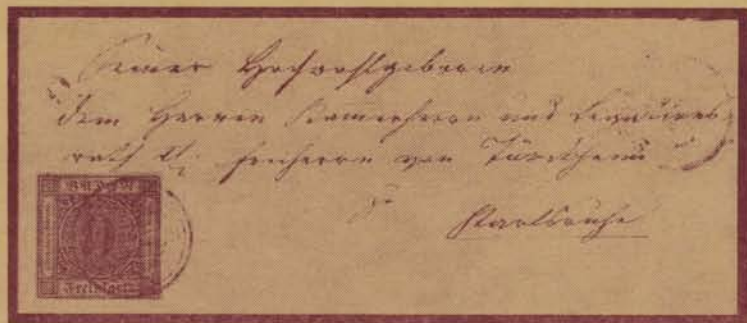 Seiner Hochwohlgeboren
dem Herren Kamerherrn und Legations
rath Freiherrn von Türckheim
zu
Karlsruhe
BADEN
Freimarke